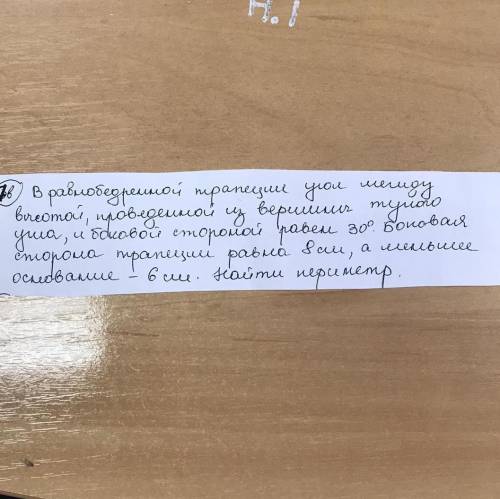 Н.1
1в В равнобедренной трапеции угол между
высотой, проведенной из вершины тупого
угла, и боковой стороной равен 30°. Боковая
сторона трапеции равна 8 см, а меньшее
основание – 6 см. Найти периметр.